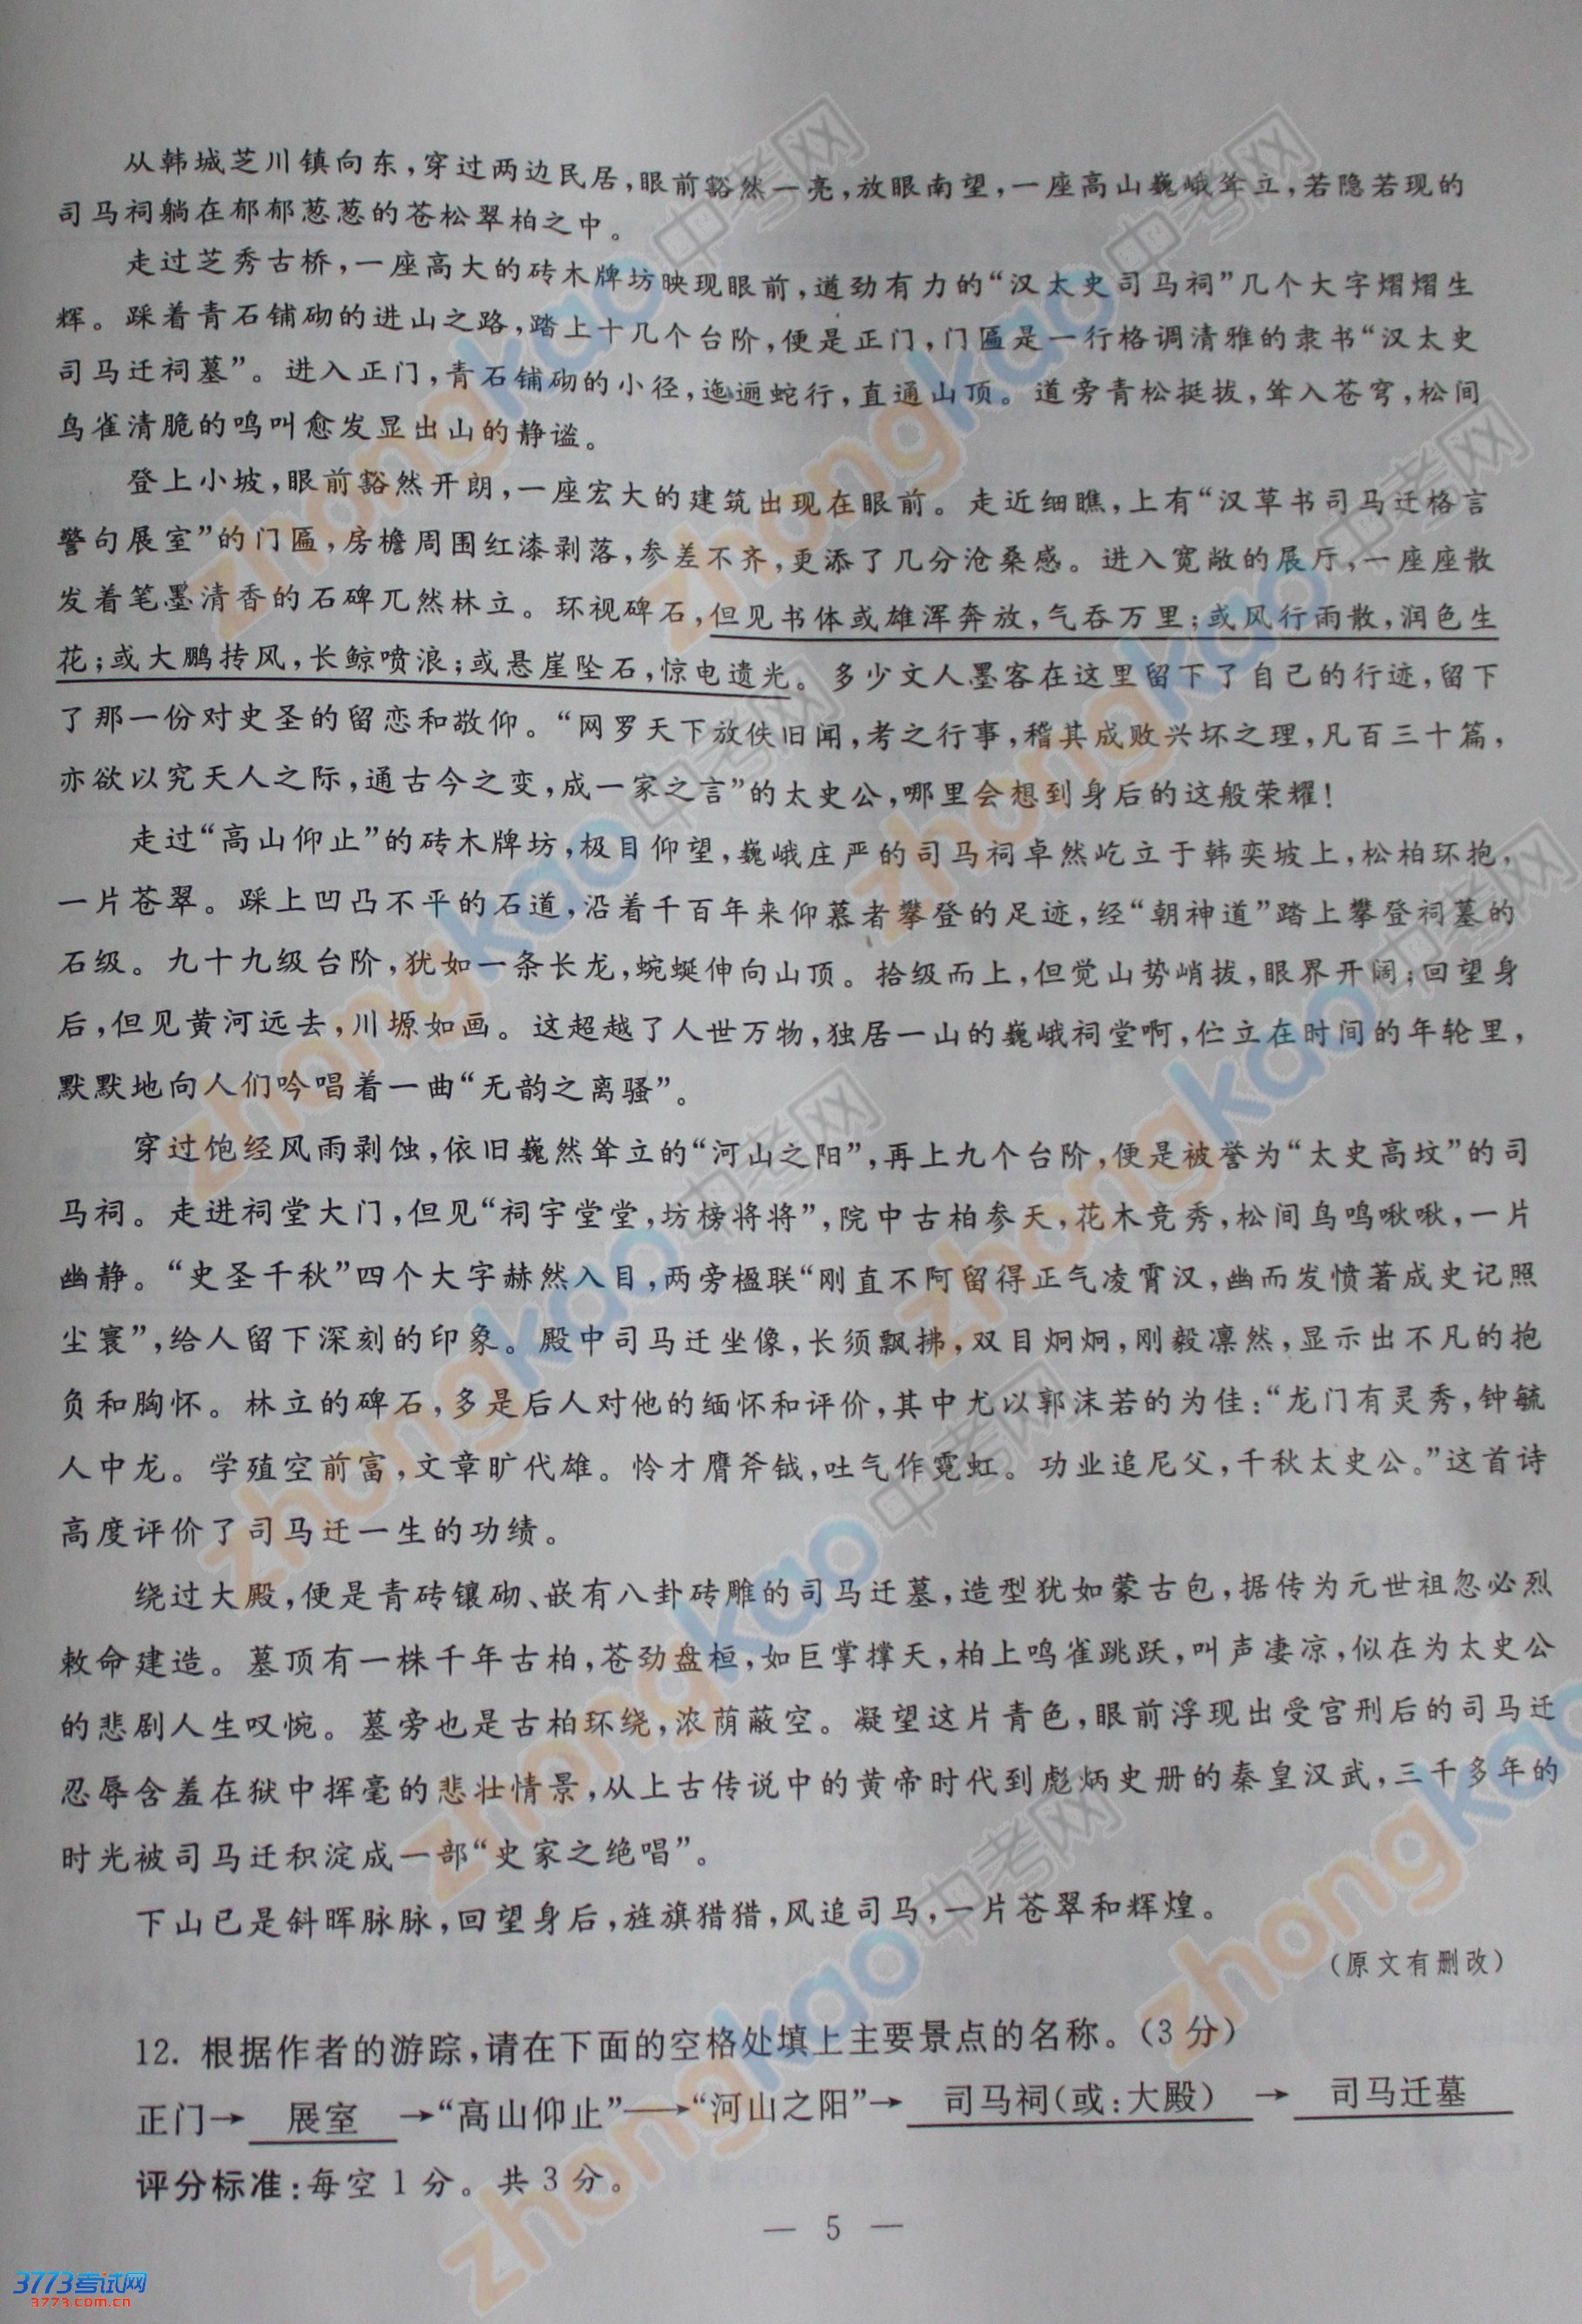 从韩城芝川镇向东,穿过两边民居,眼前豁然一亮,放眼南望,一座高山巍峨耸立,若隐若现的
司马祠躺在郁郁葱葱的苍松翠柏之中。
走过芝秀古桥,一座高大的砖木牌坊映现眼前,道劲有力的“汉太史司马祠”几个大字熠熠生
辉。踩着青石铺砌的进山之路,踏上十几个台阶,便是正门,门匾是一行格调清雅的隶书“汉太史
司马迁祠墓”。进入正门,青石铺砌的小径,迤逦蛇行,直通山顶。道旁青松挺拔,耸入苍穹,松间
鸟雀清脆的鸣叫愈发显出山的静谧。
登上小坡,眼前豁然开朗,一座宏大的建筑出现在眼前。走近细瞧,上有“汉草书司马迁格言
警句展室”的门匾,房檐周围红漆剥落,参差不齐,更添了几分沧桑感。进入宽敞的展厅,一座座散
发着笔墨清香的石碑兀然林立。环视碑石,但见书体或雄浑奔放,气吞万里;或风行雨散,润色生
花;或大鹏抟风,长鲸喷浪;或悬崖坠石,惊电遗光。多少文人墨客在这里留下了自己的行迹,留下
了那一份对史圣的留恋和敬仰。“网罗天下放佚旧闻,考之行事,稽其成败兴坏之理,凡百三十篇,
亦欲以究天人之际,通古今之变,成一家之言”的太史公,哪里会想到身后的这般荣耀!
走过“高山仰止”的砖木牌坊,极目仰望,巍峨庄严的司马祠卓然屹立于韩奕坡上,松柏环抱,
一片苍翠。踩上凹凸不平的石道,沿着千百年来仰慕者攀登的足迹,经“朝神道”踏上攀登祠墓的
石级。九十九级台阶,犹如一条长龙,蜿蜒伸向山顶。拾级而上,但觉山势峭拔,眼界开阔;回望身
后,但见黄河远去,川塬如画。这超越了人世万物,独居一山的巍峨祠堂啊,伫立在时间的年轮里,
默默地向人们吟唱着一曲“无韵之离骚”。
穿过饱经风雨剥蚀,依旧巍然耸立的“河山之阳”,再上九个台阶,便是被誉为“太史高坟”的司
马祠。走进祠堂大门,但见“祠宇堂堂,坊榜将将”,院中古柏参天,花木竞秀,松间鸟鸣啾啾,一片
幽静。“史圣千秋”四个大字赫然入目,两旁楹联“刚直不阿留得正气凌霄汉,幽而发愤著成史记照
尘寰”,给人留下深刻的印象。殿中司马迁坐像,长须飘拂,双目炯炯,刚毅凛然,显示出不凡的抱
负和胸怀。林立的碑石,多是后人对他的缅怀和评价,其中尤以郭沫若的为佳:“龙门有灵秀,钟毓
人中龙。学殖空前富,文章旷代雄。怜才膺斧钺,吐气作霓虹。功业追尼父,千秋太史公。”这首诗
高度评价了司马迁一生的功绩。
绕过大殿,便是青砖镶砌、嵌有八卦砖雕的司马迁墓,造型犹如蒙古包,据传为元世祖忽必烈
敕命建造。墓顶有一株千年古柏,苍劲盘桓,如巨掌撑天,柏上鸣雀跳跃,叫声凄凉,似在为太史公
的悲剧人生叹惋。墓旁也是古柏环绕,浓荫蔽空。凝望这片青色,眼前浮现出受宫刑后的司马迁
忍辱含羞在狱中挥毫的悲壮情景,从上古传说中的黄帝时代到彪炳史册的秦皇汉武,三千多年的
时光被司马迁积淀成一部“史家之绝唱”。
下山已是斜晖脉脉,回望身后,旌旗猎猎,风追司马,一片苍翠和辉煌。
(原文有删改)
12. 根据作者的游踪,请在下面的空格处填上主要景点的名称。(3分)
正门→ 展室 →“高山仰止”→“河山之阳”→ 司马祠(或:大殿) → 司马迁墓
评分标准:每空1分。共3分。
— 5 —
3773考试网
3773.com.cn
zhongkao中考网